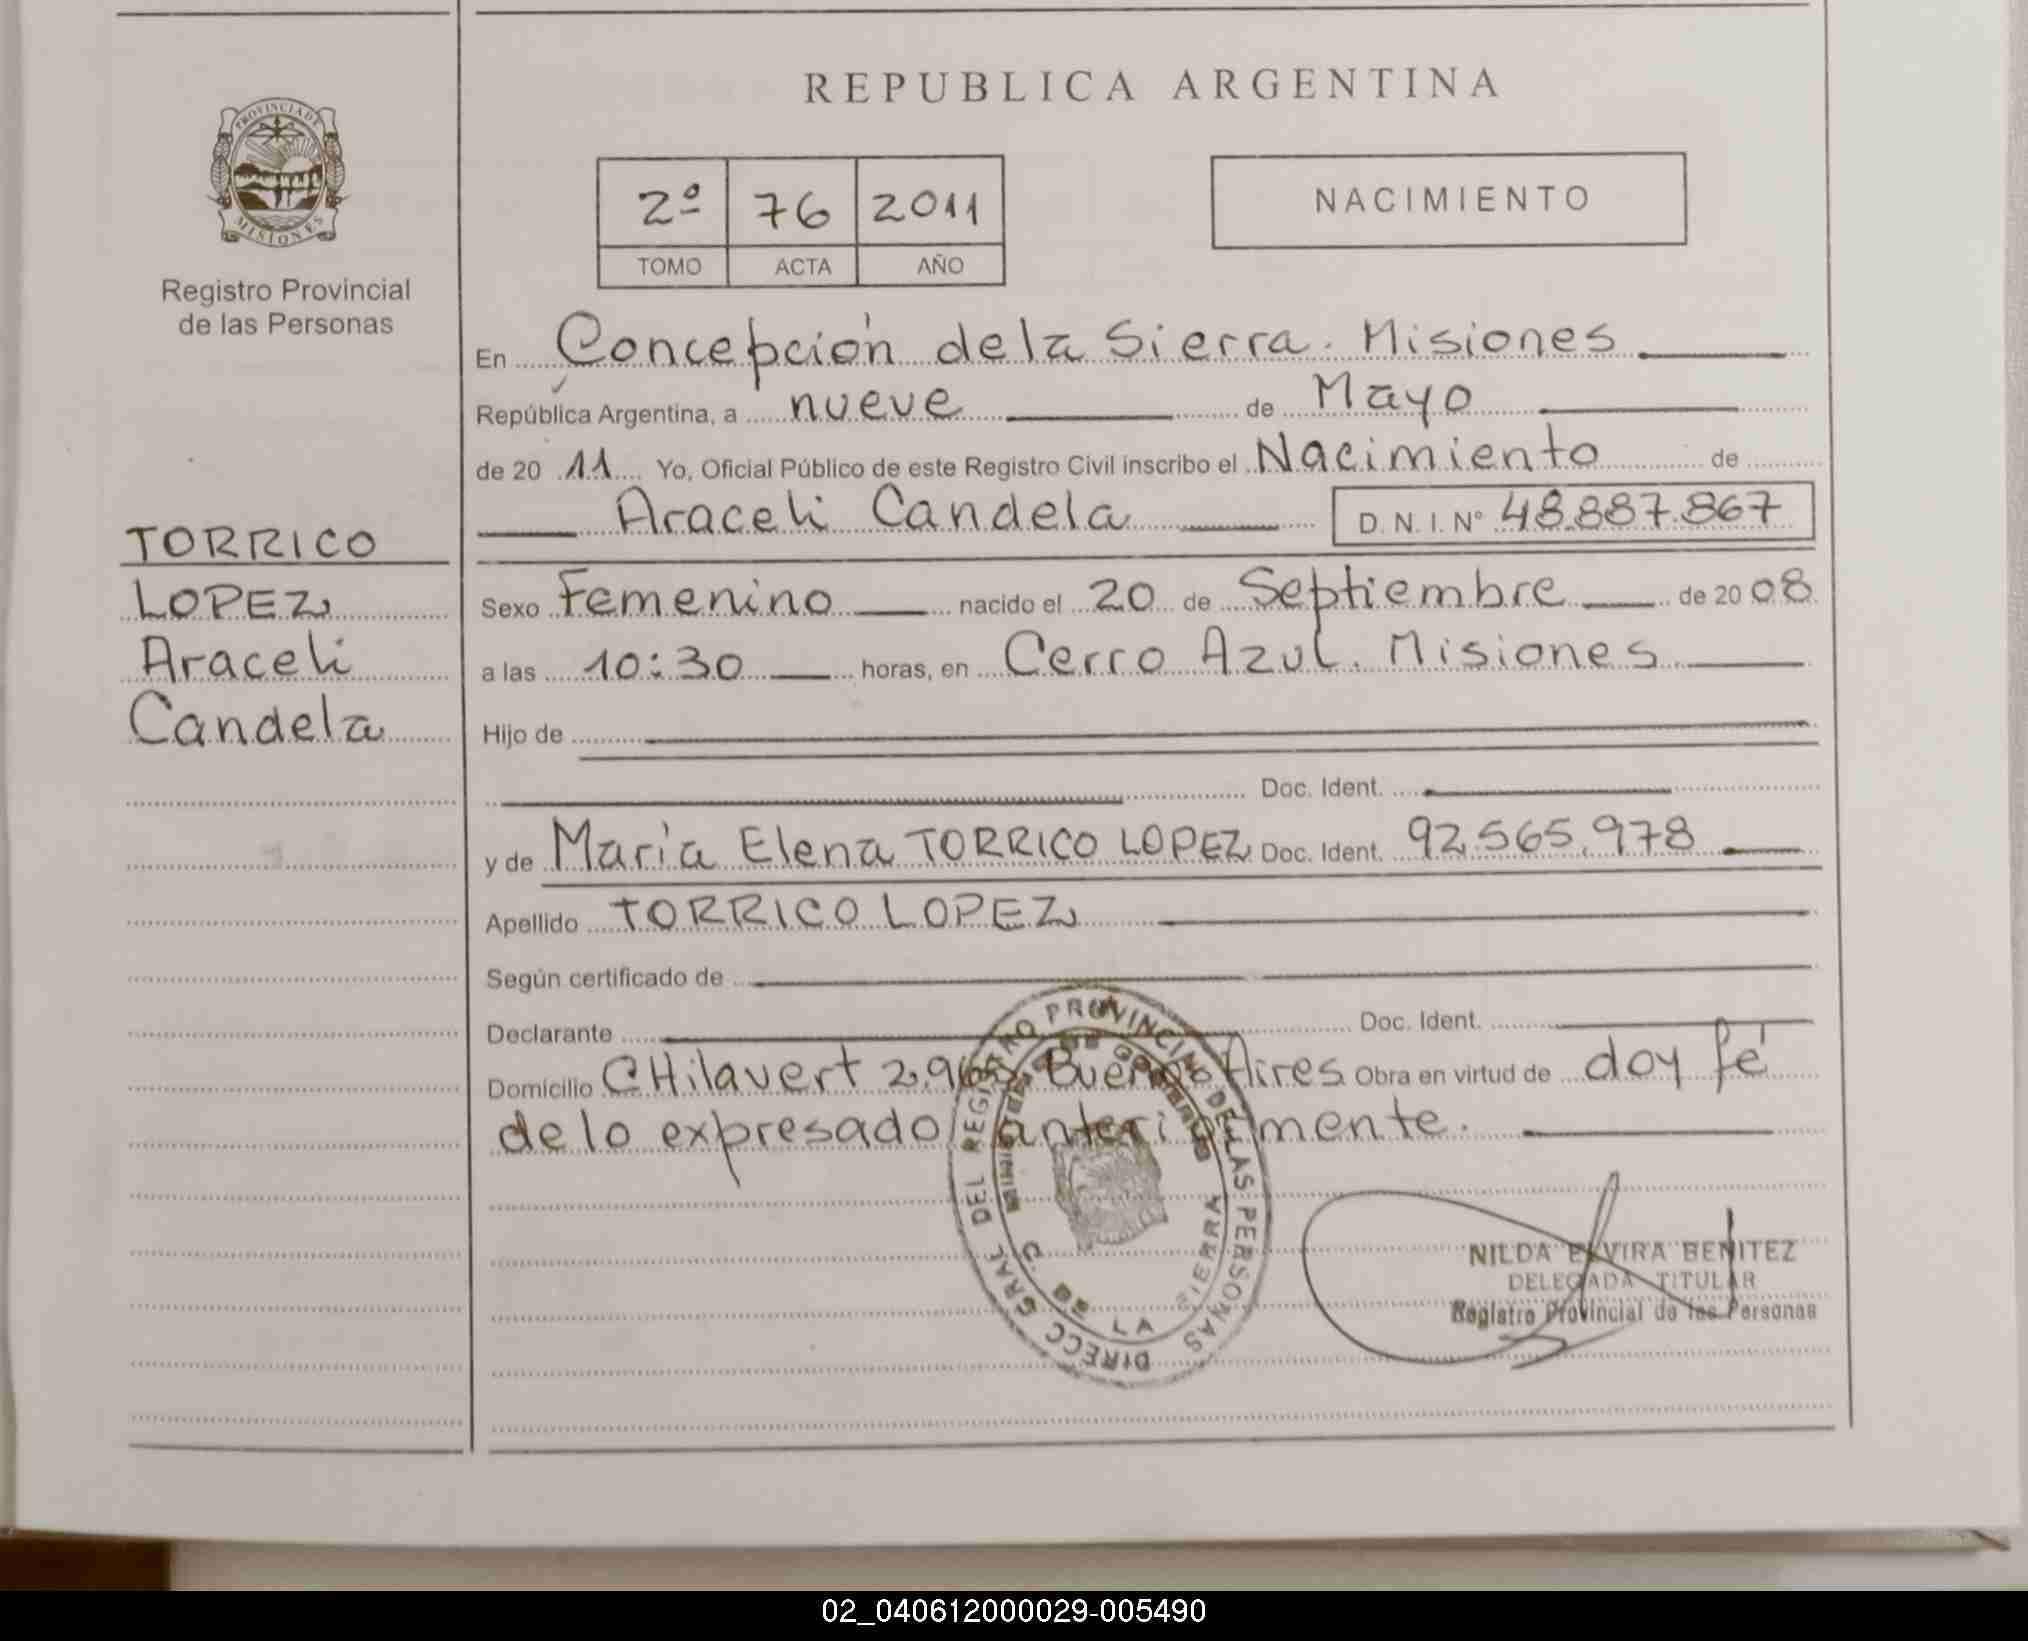 REPUBLICA ARGENTINA
PROVINCIA DE
MISIONES
Registro Provincial
de las Personas
2º 76 2011
TOMO ACTA AÑO
NACIMIENTO
En Concepción de la Sierra. Misiones
República Argentina, a nueve de Mayo
de 20 11 Yo, Oficial Público de este Registro Civil inscribo el Nacimiento de
Araceli Candela D. N. I. Nº 48.887.867
TORRICO
LOPEZ
Araceli
Candela
Sexo Femenino nacido el 20 de Septiembre de 20 08
a las 10:30 horas, en Cerro Azul. Misiones
Hijo de
Doc. Ident.
y de María Elena TORRICO LOPEZ Doc. Ident. 92.565.978
Apellido TORRICO LOPEZ
Según certificado de
Declarante Doc. Ident.
Domicilio CHilavert 2.965 Buenos Aires Obra en virtud de doy fé
de lo expresado anteriormente.
DIRECC GRAL DEL REGISTRO PROVINCIAL DE LAS PERSONAS
MINISTERIO DE GOBIERNO
C. DE LA SIERRA
NILDA ELVIRA BENITEZ
DELEGADA TITULAR
Registro Provincial de las Personas
02_040612000029-005490